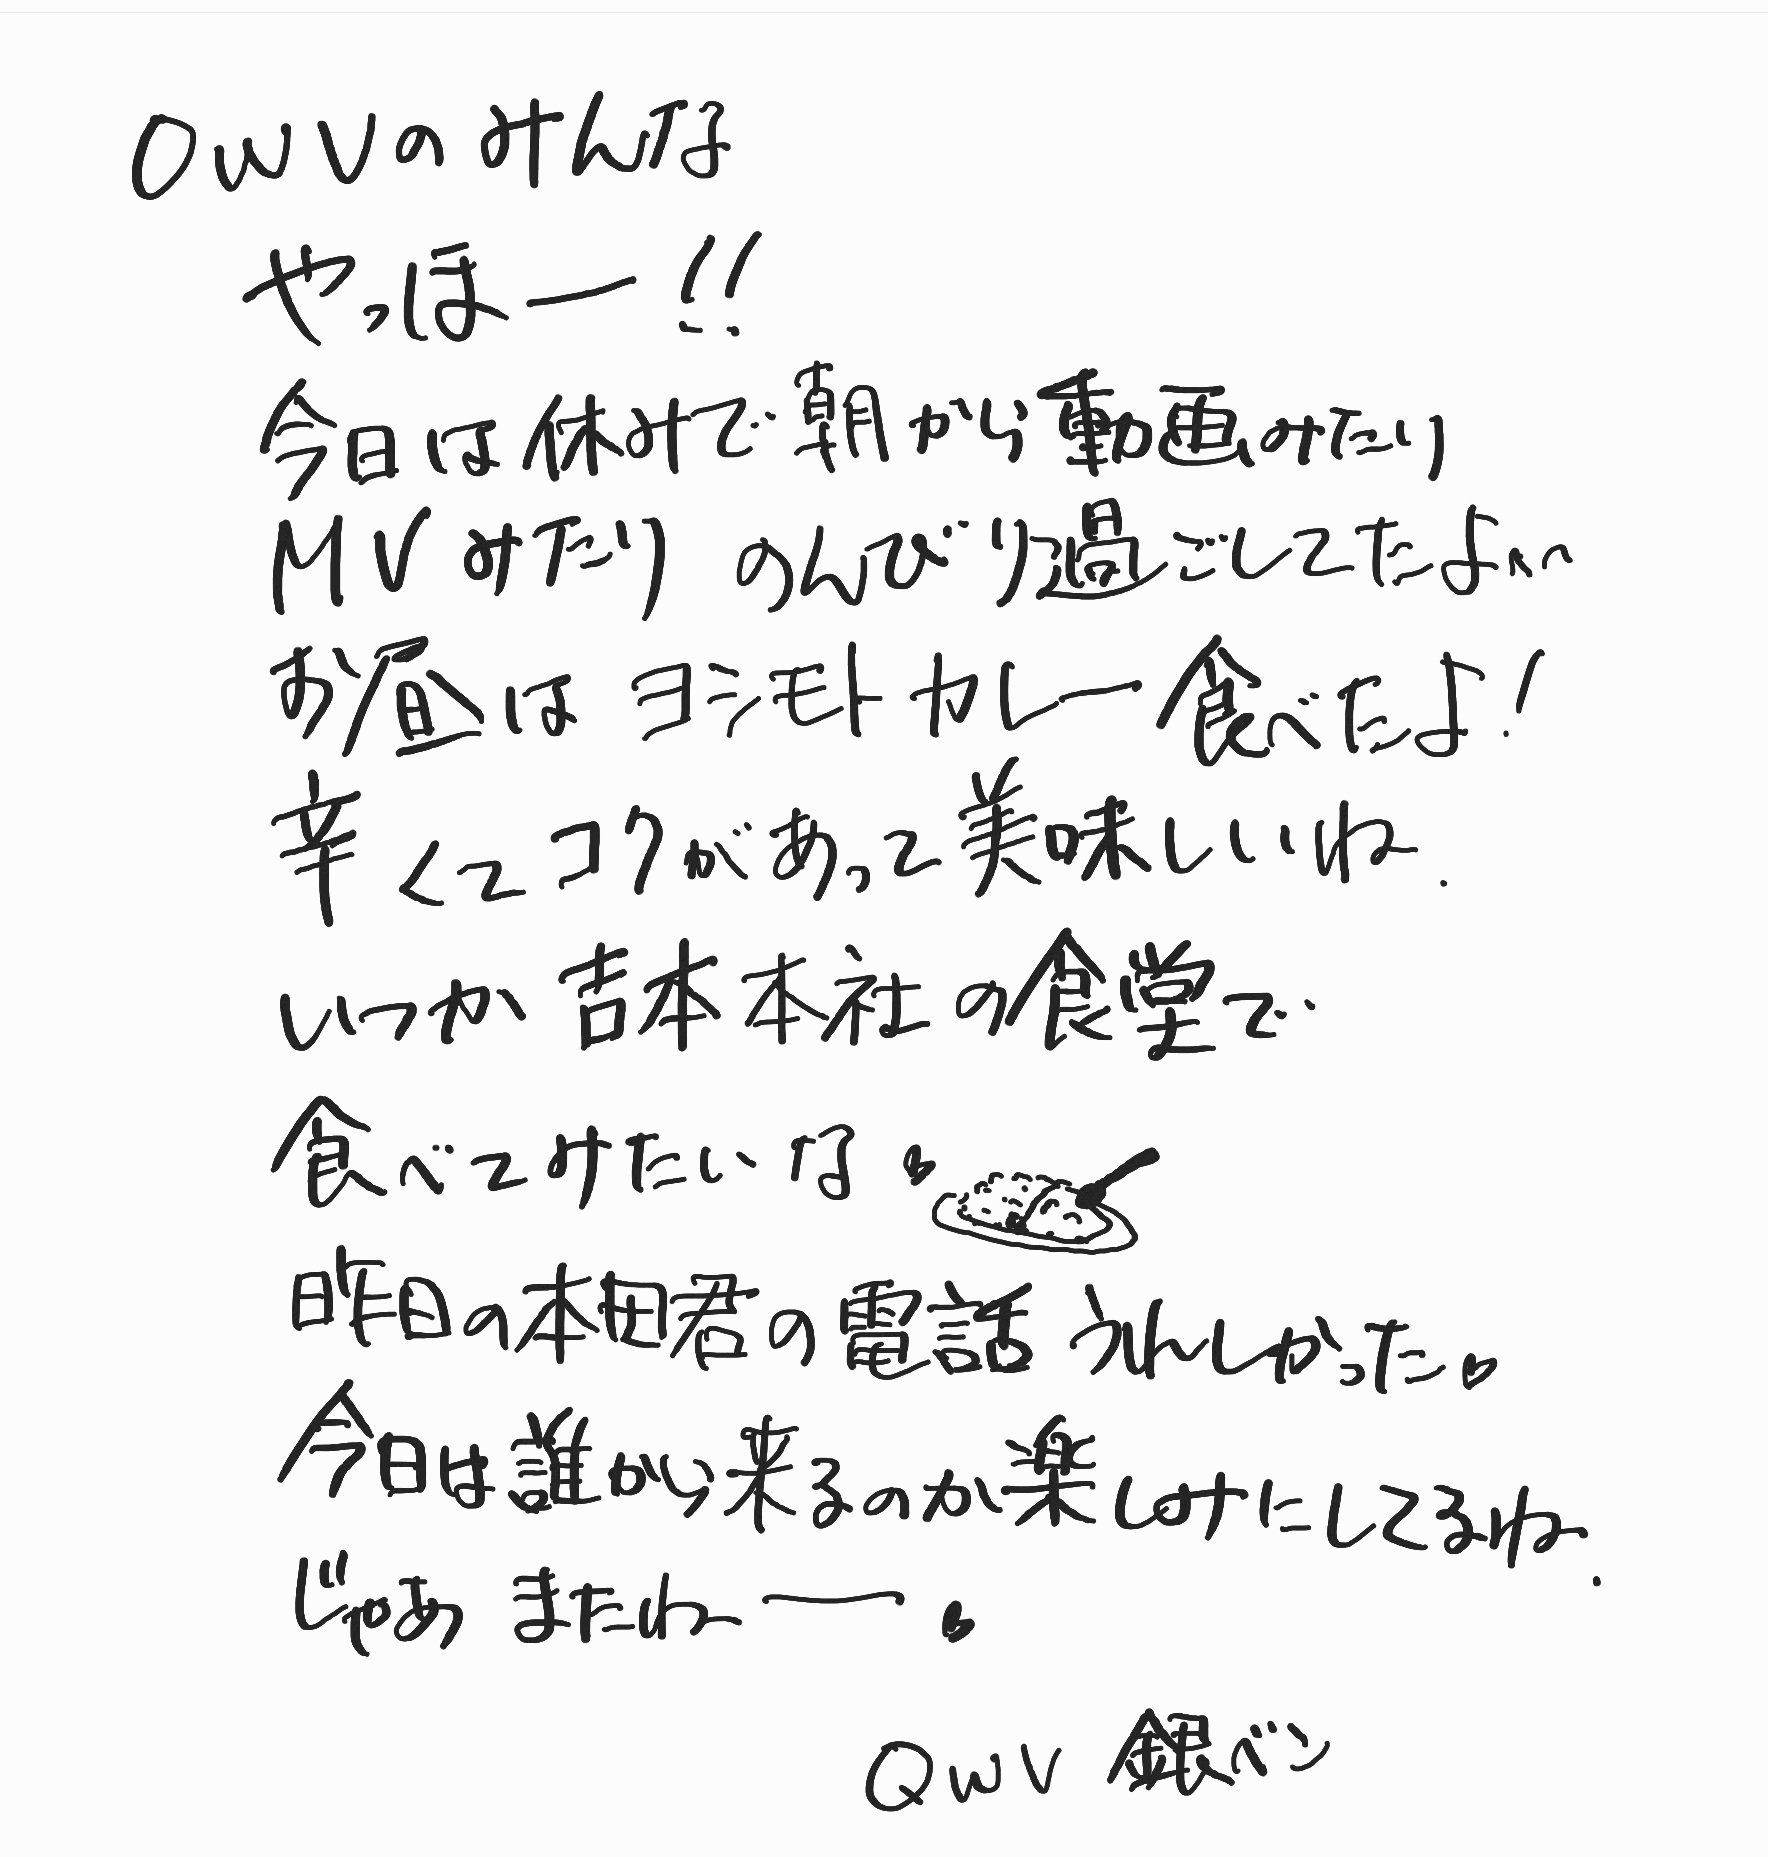 OWVのみんな
やっほー!!
今日は休みで朝から動画みたり
MVみたり のんびり過ごしてたよ
お昼はヨシモトカレー食べたよ!
辛くてコクがあって美味しいね.
いつか吉本本社の食堂で
食べてみたいな
昨日の本田君の電話うれしかった
今日は誰から来るのか楽しみにしてるね.
じゃあ またねー
QWV 銀ベン